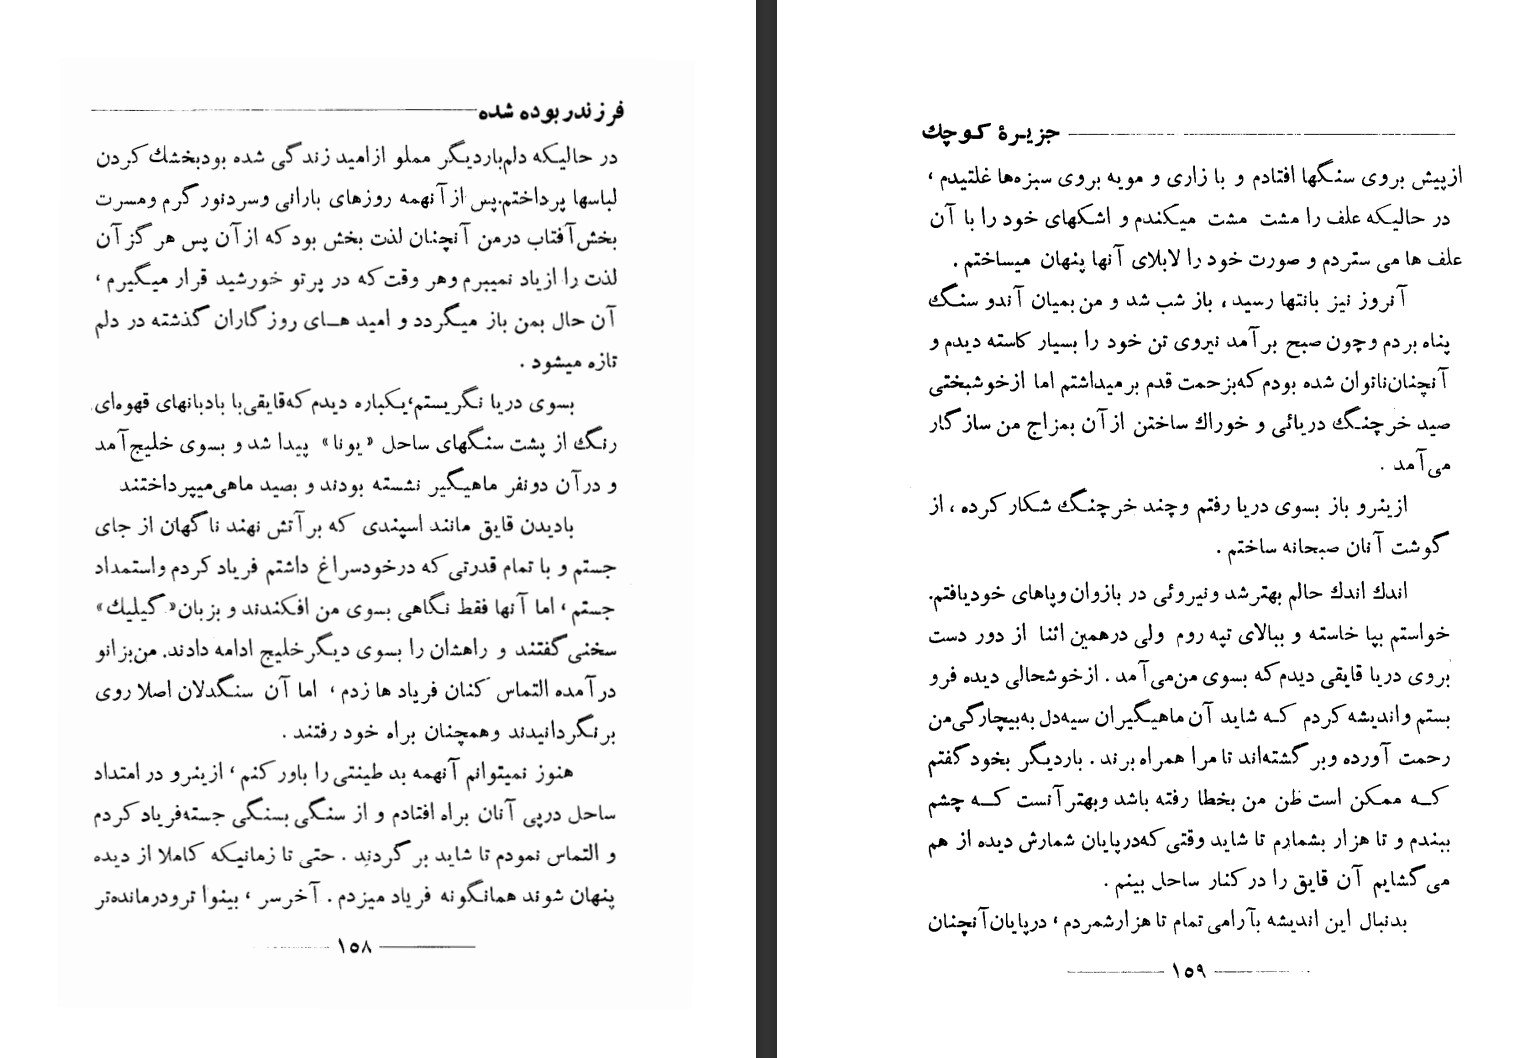 فرزندربوده شده
در حالیکه دلم باردیگر مملو ازامید زندگی شده بودبخشك کردن
لباسها پرداختم.پس ازآنهمه روزهای بارانی وسردنور گرم ومسرت
بخش آفتاب درمن آنچنان لذت بخش بودکه ازآن پس هر گز آن
لذت را ازیاد نمیبرم وهر وقت که در پرتو خورشید قرار میگیرم ،
آن حال بمن باز میگردد و امید هــای روزگاران گذشته در دلم
تازه میشود .
بسوی دریا نگریستم،یکباره دیدم که قایقی با بادبانهای قهوه‌ای
رنگ از پشت سنگهای ساحل «یونا» پیدا شد و بسوی خلیج آمد
و درآن دونفر ماهیگیر نشسته بودند و بصید ماهی میپرداختند
بادیدن قایق مانند اسپندی که برآتش نهند ناگهان از جای
جستم و با تمام قدرتی که درخودسراغ داشتم فریاد کردم واستمداد
جستم ، اما آنها فقط نگاهی بسوی من افکندند و بزبان «گیلیك»
سخنی گفتند و راهشان را بسوی دیگرخلیج ادامه دادند. من بزانو
درآمده التماس کنان فریاد ها زدم ، اما آن سنگدلان اصلا روی
برنگردانیدند وهمچنان براه خود رفتند .
هنوز نمیتوانم آنهمه بد طینتی را باورکنم ، ازینرو در امتداد
ساحل درپی آنان براه افتادم و از سنگی بسنگی جسته فریاد کردم
و التماس نمودم تا شاید برگردند . حتی تا زمانیکه کاملا از دیده
پنهان شوند همانگونه فریاد میزدم . آخرسر ، بینوا ترودرمانده‌تر
۱۵۸
جزیرۀ کوچك
ازپیش بروی سنگها افتادم و با زاری و مویه بروی سبزه‌ها غلتیدم ،
در حالیکه علف را مشت مشت میکندم و اشکهای خود را با آن
علف ها می ستردم و صورت خود را لابلای آنها پنهان میساختم .
آنروز نیز بانتها رسید ، باز شب شد و من بمیان آندو سنگ
پناه بردم وچون صبح برآمد نیروی تن خود را بسیار کاسته دیدم و
آنچنان ناتوان شده بودم که بزحمت قدم برمیداشتم اما ازخوشبختی
صید خرچنگ دریائی و خوراك ساختن ازآن بمزاج من سازگار
می‌آمد .
ازینرو باز بسوی دریا رفتم وچند خرچنگ شکار کرده ، از
گوشت آنان صبحانه ساختم .
اندك اندك حالم بهترشد ونیروئی در بازوان وپاهای خودیافتم.
خواستم بپا خاسته و ببالای تپه روم ولی درهمین اثنا از دور دست
بروی دریا قایقی دیدم که بسوی من می‌آمد . ازخوشحالی دیده فرو
بستم واندیشه کردم کــه شاید آن ماهیگیران سیه‌دل به‌بیچارگی من
رحمت آورده وبرگشته‌اند تا مرا همراه برند . باردیگر بخود گفتم
کــه ممکن است ظن من بخطا رفته باشد وبهترآنست کــه چشم
ببندم و تا هزار بشمارم تا شاید وقتی که درپایان شمارش دیده از هم
می‌گشایم آن قایق را درکنار ساحل بینم .
بدنبال این اندیشه بآرامی تمام تا هزارشمردم ، درپایان آنچنان
۱۵۹